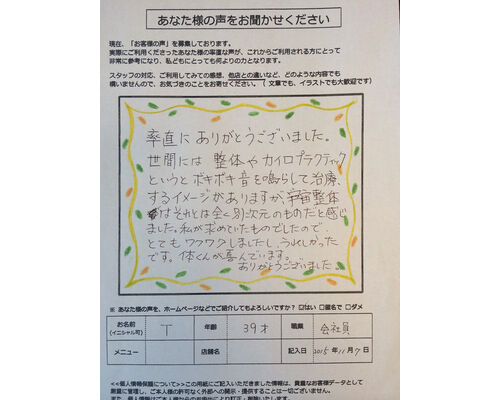 あなた様の声をお聞かせください
現在、「お客様の声」を募集しております。
実際にご利用くださったあなた様の率直な声が、これからご利用される方にとって
非常に参考になり、私どもにとっても何よりの力となります。
スタッフの対応、ご利用してみての感想、他店との違いなど、どのような内容でも
構いませんので、お気づきのことをお寄せください。（ 文章でも、イラストでも大歓迎です）
率直にありがとうございました。
世間には 整体やカイロプラクティック
というと ボキボキ音を鳴らして治療、
するイメージがありますが、宇宙整体
はそれとは全く別次元のものだと感じ
ました。私が求めていたものでしたので、
とてもワクワクしましたし、うれしかった
です。体くんが喜んでいます。
ありがとうございました
※ あなた様の声を、ホームページなどでご紹介してもよろしいですか？ ☑はい □匿名で □ダメ
お名前 T 年齢 39才 職業 会社員
(イニシャル可)
メニュー 店舗名 記入日 2015年11月7日
<<個人情報保護について>>この用紙にご記入いただきました情報は、貴重なお客様データとして
厳重に管理し、ご本人様の許可なく外部への開示・提供することは一切ございません。